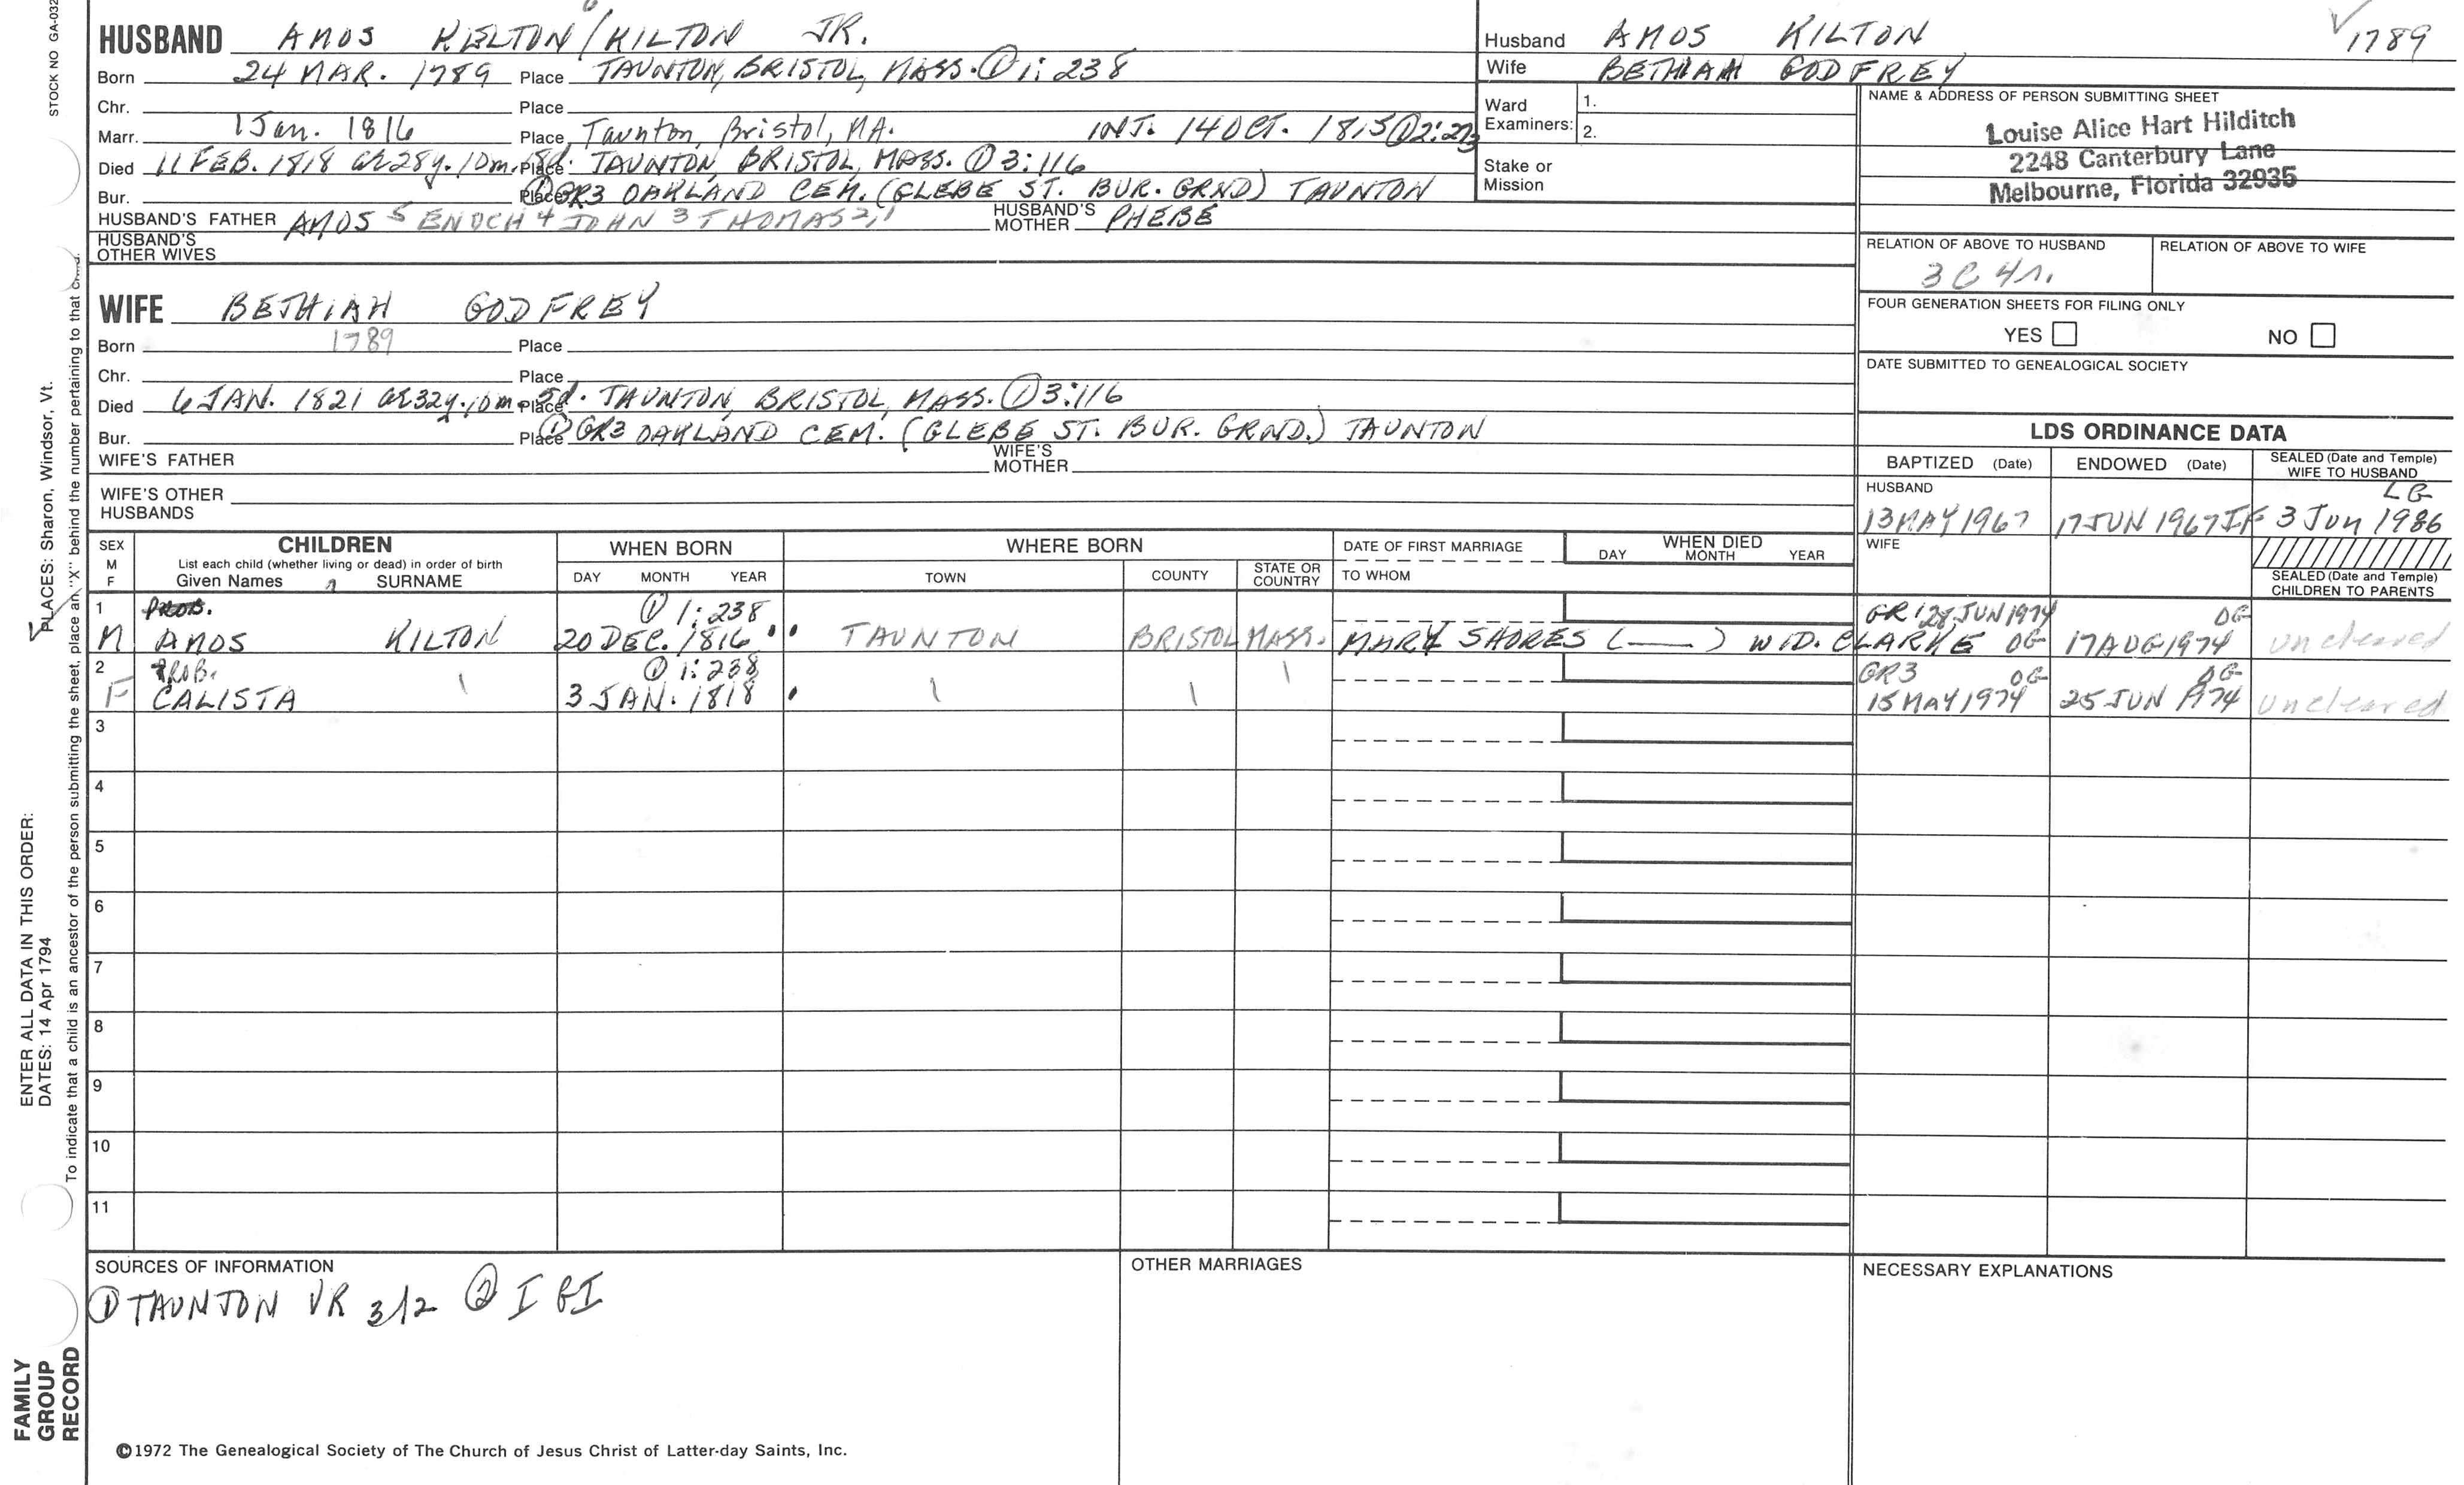 STOCK NO GA-032
HUSBAND AMOS KELTON/KILTON JR.
Born 24 MAR. 1789 Place TAUNTON, BRISTOL, MASS. ① 1: 238
Chr. Place
Marr. 1 Jan. 1816 Place Taunton, Bristol, MA. INT. 14 OCT. 1815 ① 2: 273
Died 11 FEB. 1818 ae 28y. 10m. 18d. Place TAUNTON, BRISTOL, MASS. ① 3:116
Bur. Place ① GR3 OAKLAND CEM. (GLEBE ST. BUR. GRND) TAUNTON
HUSBAND'S FATHER AMOS 5 ENOCH 4 JOHN 3 THOMAS 2,1 HUSBAND'S MOTHER PHEBE
HUSBAND'S OTHER WIVES
WIFE BETHIAH GODFREY
Born 1789 Place
Chr. Place
Died 6 JAN. 1821 ae 32y. 10m. 5d. Place TAUNTON, BRISTOL, MASS. ① 3:116
Bur. Place ① GR3 OAKLAND CEM. (GLEBE ST. BUR. GRND.) TAUNTON
WIFE'S FATHER WIFE'S MOTHER
WIFE'S OTHER HUSBANDS
Husband AMOS KILTON 1789
Wife BETHIAH GODFREY
Ward Examiners: 1.
2.
Stake or Mission
NAME & ADDRESS OF PERSON SUBMITTING SHEET
Louise Alice Hart Hilditch
2248 Canterbury Lane
Melbourne, Florida 32935
RELATION OF ABOVE TO HUSBAND RELATION OF ABOVE TO WIFE
3C 4r.
FOUR GENERATION SHEETS FOR FILING ONLY
YES NO
DATE SUBMITTED TO GENEALOGICAL SOCIETY
LDS ORDINANCE DATA
BAPTIZED (Date) ENDOWED (Date) SEALED (Date and Temple) WIFE TO HUSBAND
HUSBAND LG
13 MAY 1967 17 JUN 1967 IF 3 Jun 1986
WIFE
SEALED (Date and Temple) CHILDREN TO PARENTS
SEX M F CHILDREN WHEN BORN WHERE BORN DATE OF FIRST MARRIAGE WHEN DIED
List each child (whether living or dead) in order of birth
Given Names SURNAME DAY MONTH YEAR TOWN COUNTY STATE OR COUNTRY TO WHOM DAY MONTH YEAR
1 PROB. ① 1: 238 GR1 28 JUN 1974 OG
M AMOS KILTON 20 DEC. 1816 TAUNTON BRISTOL MASS. MARY SHORES ( ) WID. CLARKE OG 17 AUG 1974 uncleared
2 PROB. ① 1: 238 GR3 OG OG
F CALISTA 3 JAN. 1818 15 MAY 1974 25 JUN 1974 uncleared
3
4
5
6
7
8
9
10
11
SOURCES OF INFORMATION OTHER MARRIAGES NECESSARY EXPLANATIONS
① TAUNTON VR 312 ② IGI
©1972 The Genealogical Society of The Church of Jesus Christ of Latter-day Saints, Inc.
FAMILY GROUP RECORD
ENTER ALL DATA IN THIS ORDER:
DATES: 14 Apr 1794
PLACES: Sharon, Windsor, Vt.
To indicate that a child is an ancestor of the person submitting the sheet, place an "X" behind the number pertaining to that child.